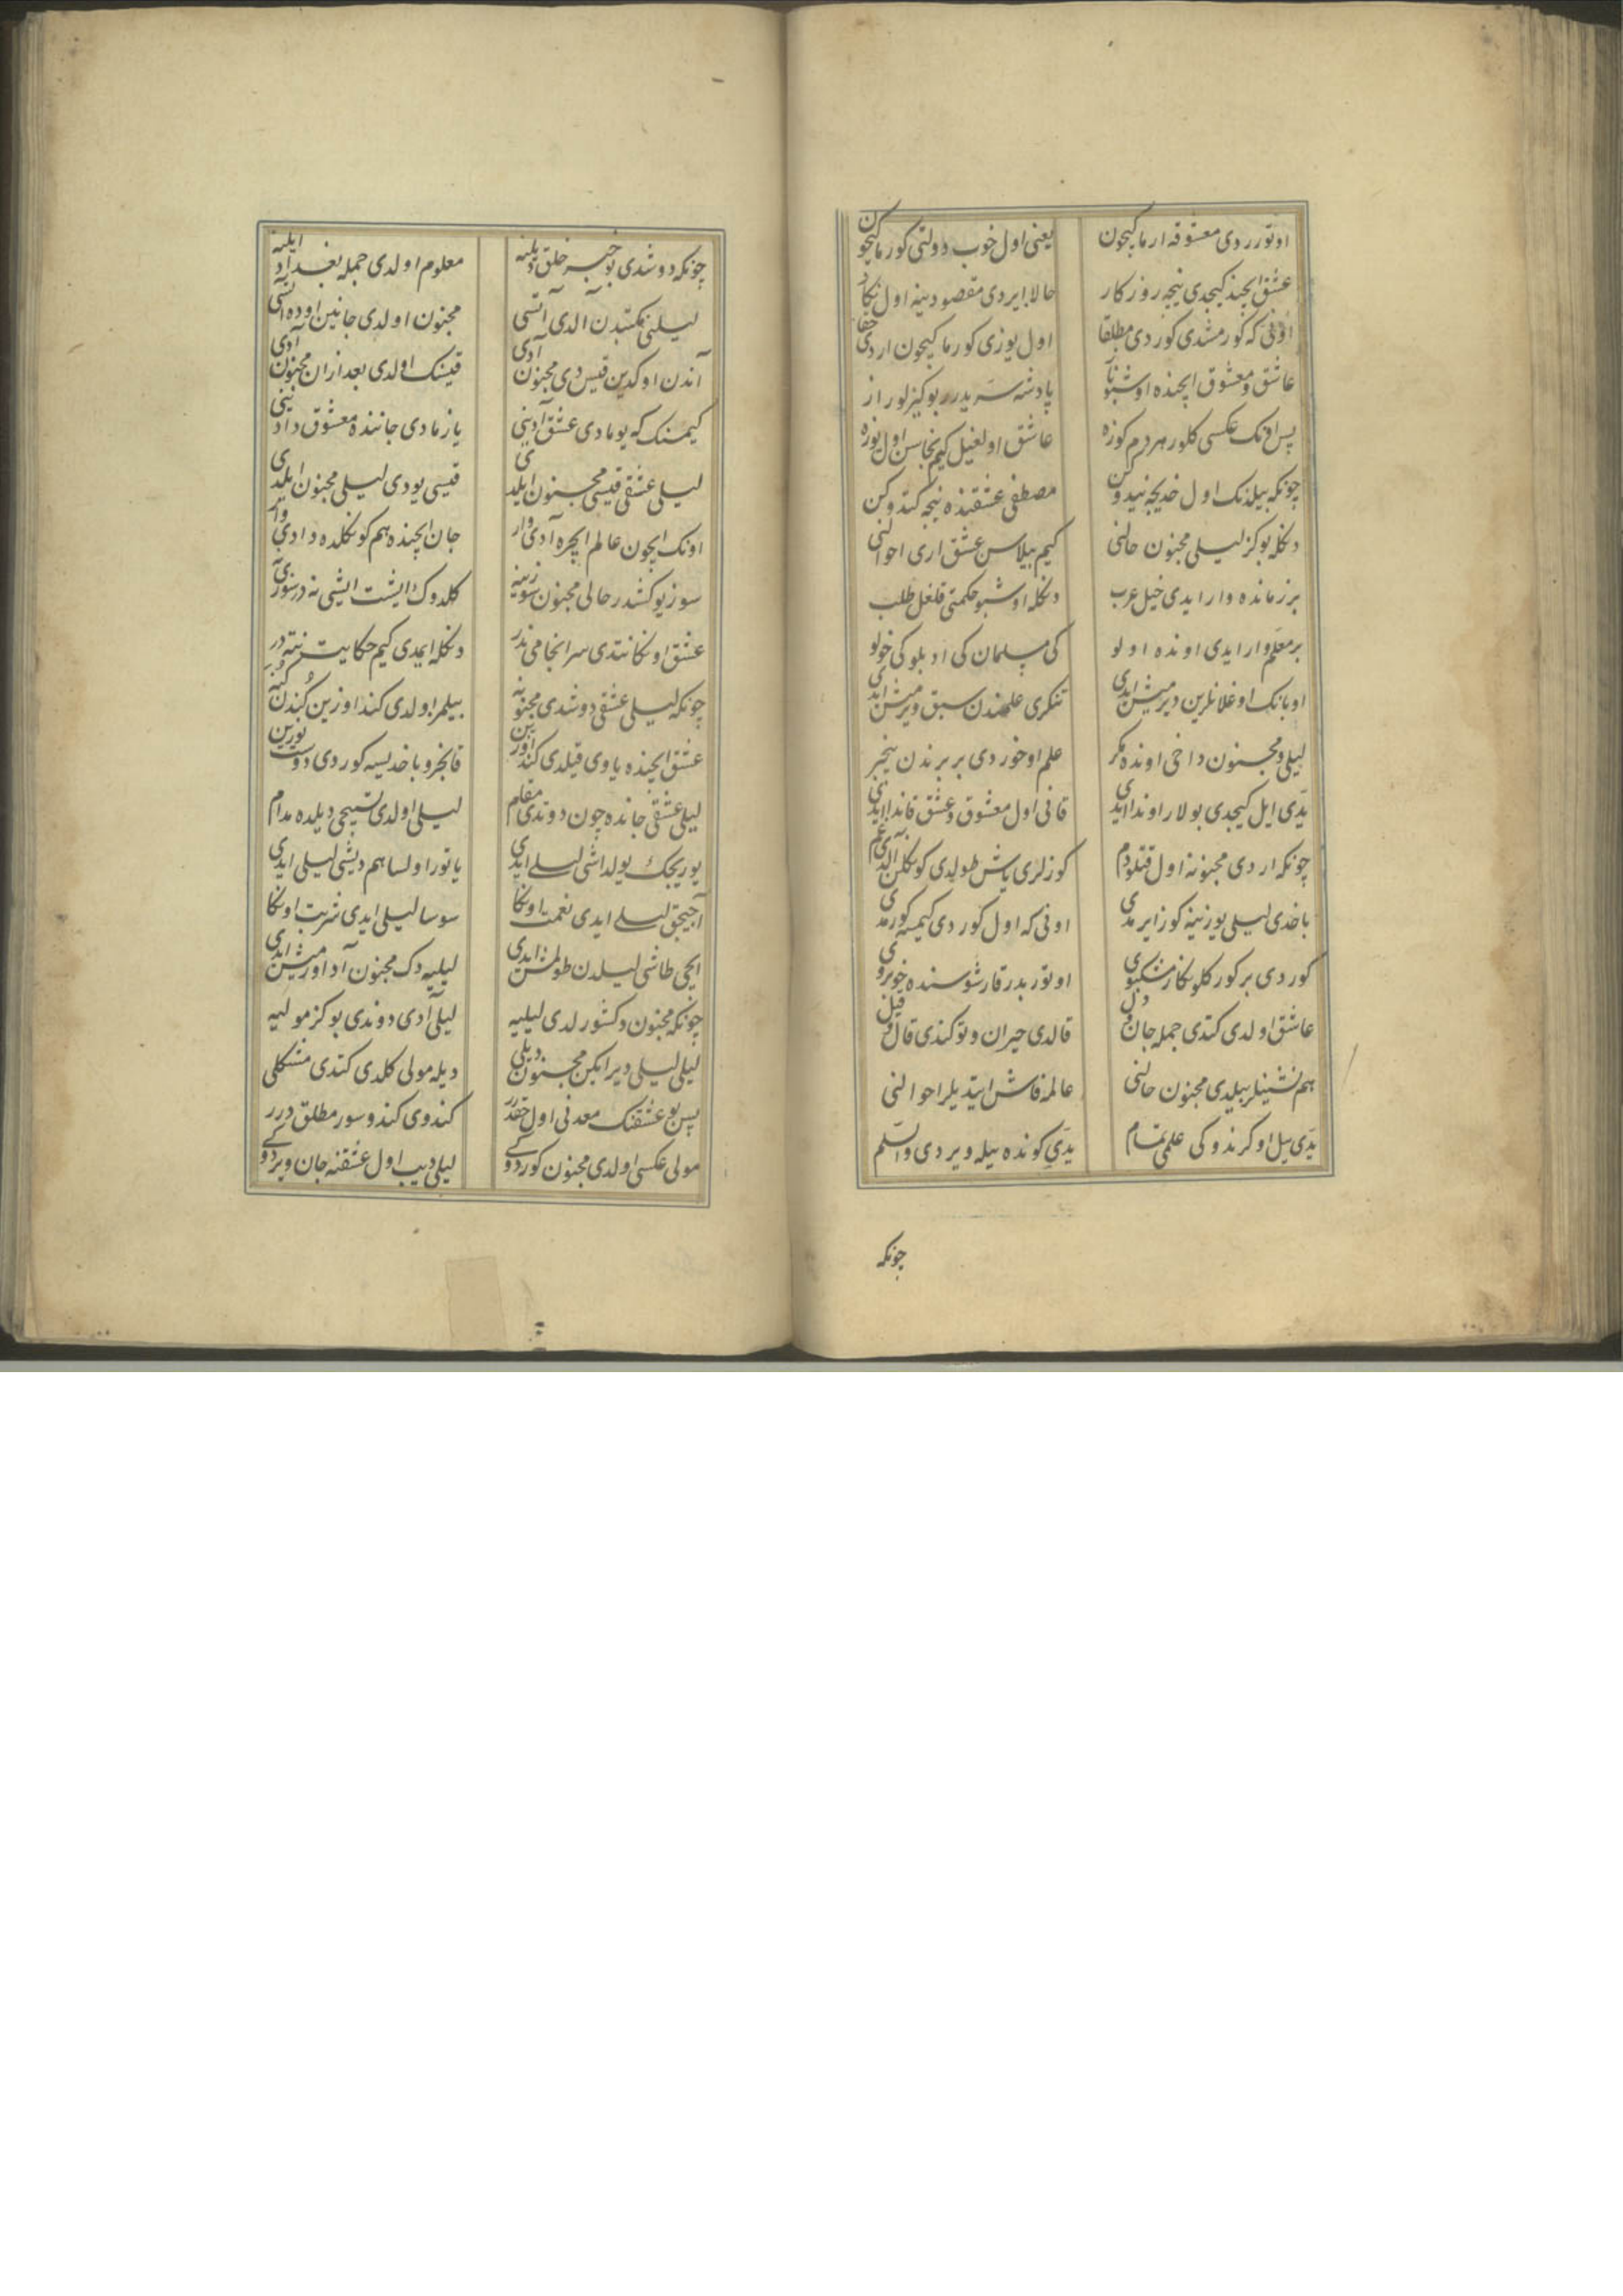 اوتورردی معشوقه ارماکیچون یعنی اول خوب دولتی کورماکیچون
عشق ایچنده کیچدی نیجه روزکار حالا ایردی مقصودینه اول نکار
اونی که کورمشدی کوردی مطلقا اول یوزی کورماکیچون اردی حقا
عاشق و معشوق ایچنده اوشبو ناز پادشه سریدرر بو کیزلو راز
پس اونک عکسی کلور هردم کوزه عاشق اولغیل کیم بخاسن اول یوزه
چونکه بیلدنک اول خدیجه نیدوکن مصطفی عشقنده نیجه کتدوکن
دنکله بو کز لیلی مجنون حالنی کیم بیلاسن عشق اری احوالنی
بر زمانده وار ایدی خیل عرب دنکله اوشبو حکمتی قلغل طلب
بر معلم وار ایدی اونده اولو کی مسلمان کی ادبلو کی خولو
اوبانک اوغلانلرین دیرمیش ایدی تنکری علمندن سبق ویرمیش ایدی
لیلی و مجنون داخی اونده مکر علم اوخوردی بربرندن بیخبر
یدی ایل کیجدی بولار اوندا ایدی قانی اول معشوق و عشق قاندا ایدی
چونکه اردی مجنونه اول قتلو دم کوزلری یاش طولدی کونکلن آلدی غم
باخدی لیلی یوزینه کوز ایرمدی اونی که اول کوردی کیمسه کورمدی
کوردی بر کورکلو نکار مشکبوی اوتوربدر قارشوسنده خوبروی
عاشق اولدی کتدی جمله جان و دل قالدی حیران و توکندی قال و قیل
هم نشینلر بیلدی مجنون حالنی عالمه فاش ایتدیلر احوالنی
یدی ییل اوکرندوکی علمی تمام یدی کونده ییله ویردی والسلم
چونکه
چونکه دوشدی بو خبر خلق دیلینه معلوم اولدی جمله بغداد ایلینه
لیلینی مکتبدن آلدی آتسی مجنون اولدی جانین اوده آتسی
آندن اوکدین قیس دی مجنون آدی قیسنک اولدی بعد ازان مجنون آدی
کیمسنک که یومادی عشق آدینی یازمادی جاننده معشوق دادینی
لیلی عشقی قیسی مجنون ایلدی قیسی یودی لیلی مجنون ایلدی
اونک ایچون عالم ایچره آدی وار جان ایچنده هم کونکلده دادی وار
سوز یوکشدر حالی مجنون سوزینه کلدوک ایشت ایشی نه در سوزی نه
عشق اونکا نتدی سرانجامی ندر دنکله ایمدی کیم حکایت نته در
چونکه لیلی عشقی دوشدی مجنونه بیلمز اولدی کندوزین کندن کنه
عشق ایچنده یاوی قیلدی کندوزین قانجرو باخدیسه کوردی دوست یوزین
لیلی عشقی جانده چون دوتدی مقام لیلی اولدی تسبیحی دیلده مدام
یوریجک یولداشی لیلی ایدی یاتور اولسا هم دیشی لیلی ایدی
آجیجق لیلی ایدی نعمت اونکا سوسا لیلی ایدی شربت اونکا
ایچی طاشی لیلدن طولمش ایدی لیلییه دک مجنون آد اورمیش ایدی
چونکه مجنون دکشورلدی لیلییه لیلی آدی دوندی بو کز مولییه
لیلی لیلی دیر ایکن مجنون دیلی دیله مولی کلدی کتدی مشکلی
پس بو عشقنک معدنی اول حقدرر کندوی کندو سور مطلق درر
مولی عکسی اولدی مجنون کوردوکی لیلی دیب اول عشقنه جان ویردوکی